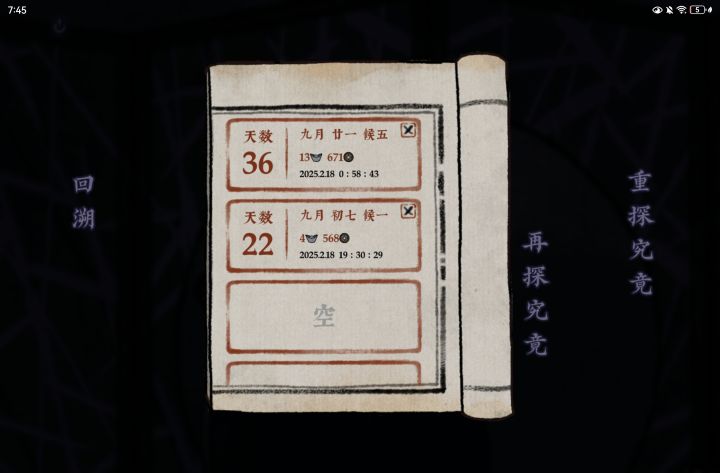 7:45
5
回溯
天数
36
九月 廿一 候五
13 671
2025.2.18 0:58:43
天数
22
九月 初七 候一
4 568
2025.2.18 19:30:29
空
再探究竟
重探究竟